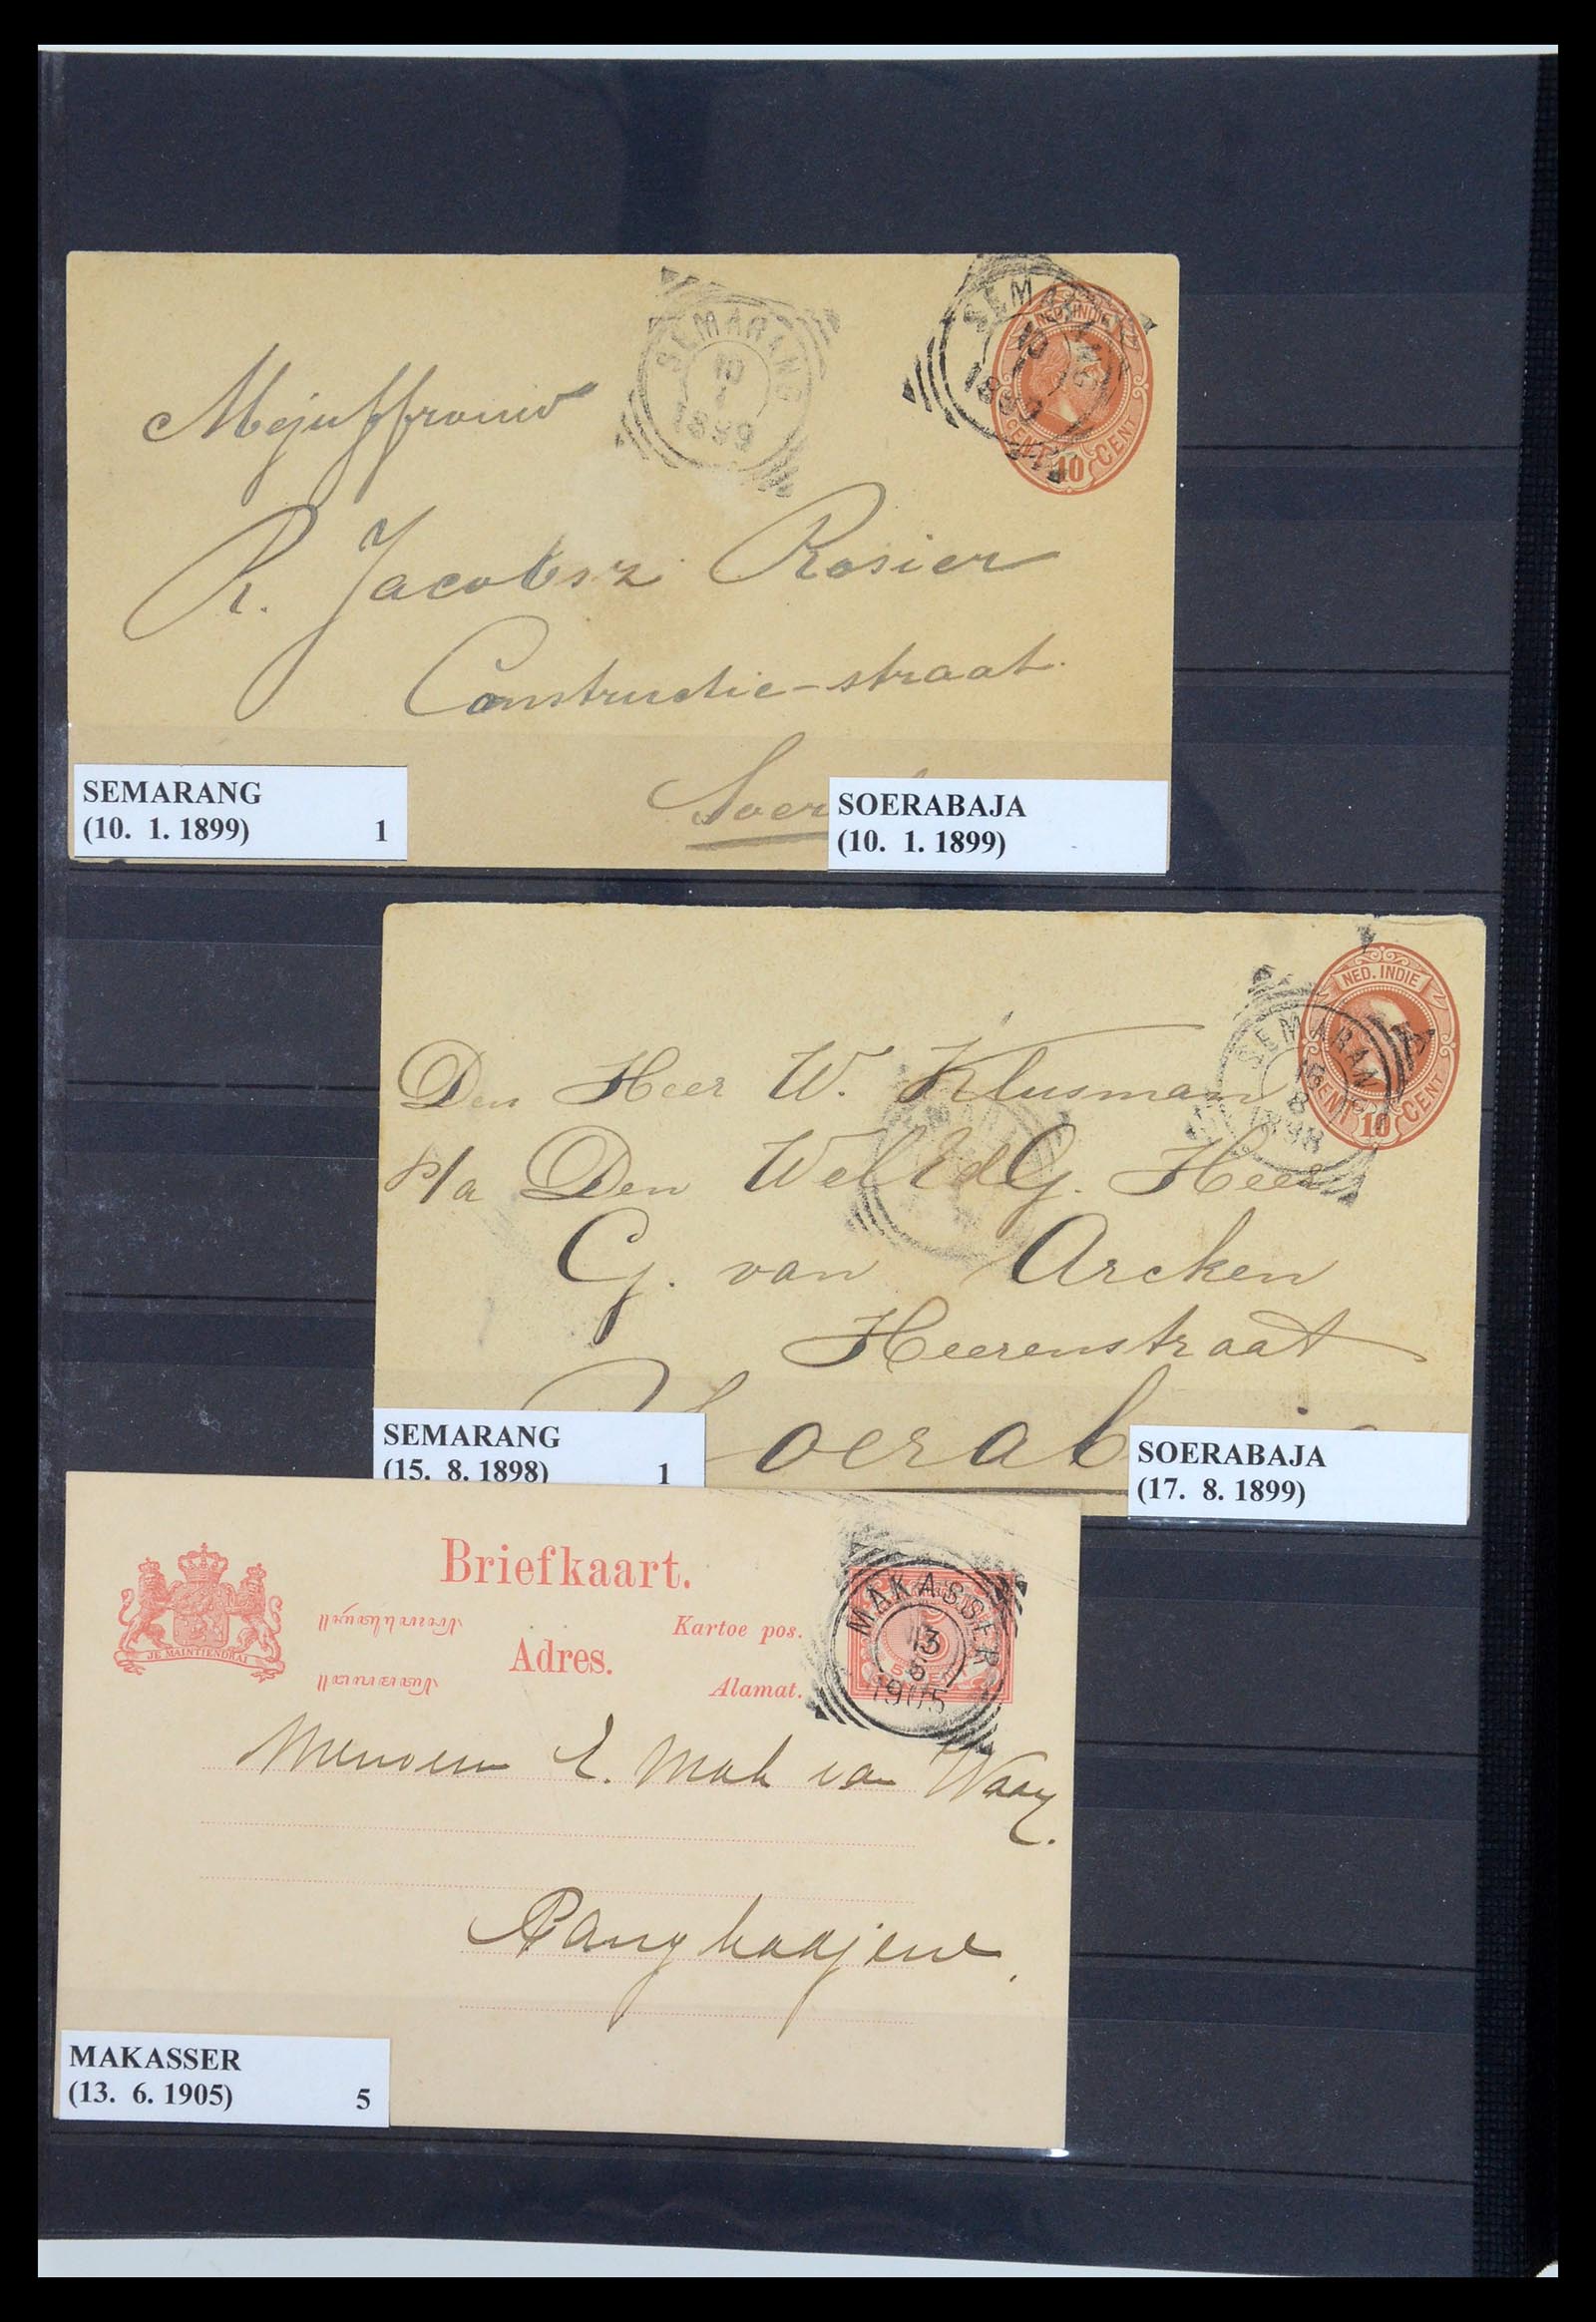 SEMARANG
10
1
1899
SEMA
NED. INDIE
CENT 10 CENT
Mejuffrouw
R. Jacobsz Rosier
Constructie-straat.
Soer
SEMARANG
(10. 1. 1899) 1
SOERABAJA
(10. 1. 1899)
NED. INDIE
SEMARAN
8
1898
CENT 10 CENT
Den Heer W. Klusman
p/a Den Wel Ed G. Heer
G. van Arcken
Heerenstraat
Soerab
SEMARANG
(15. 8. 1898) 1
SOERABAJA
(17. 8. 1899)
JE MAINTIENDRAI
Briefkaart.
Adres.
Kartoe pos.
Alamat.
MAKASSER
13
6
1905
E. Mak van Waay.
Pangkadjene.
MAKASSER
(13. 6. 1905) 5